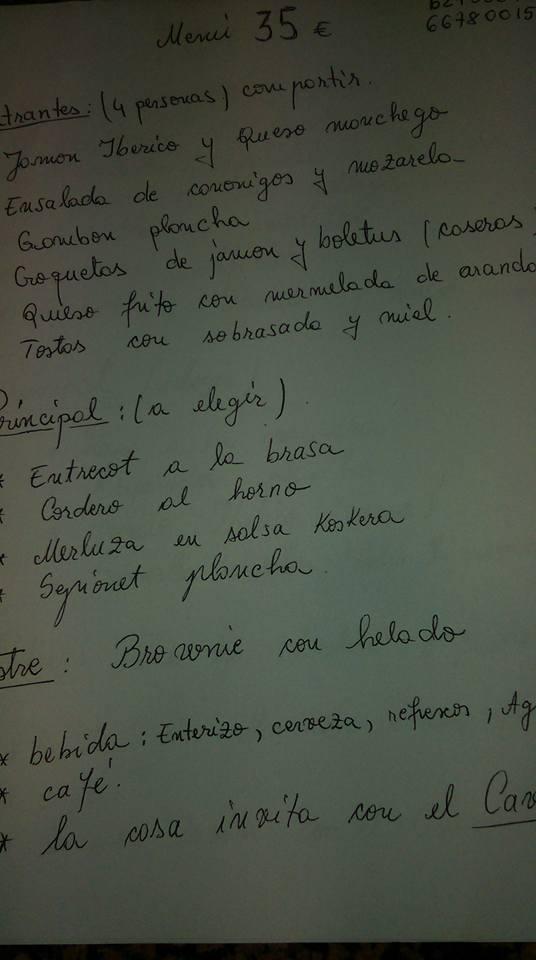 Menu 35 €
66780015
trantes: (4 personas) compartir.
Jamon Iberico y Queso monchego
Ensalada de cononigos y mozarela
Gambon plancha
Croquetas de jamon y boletus (caseras)
Queso frito con mermelada de arando
Tostas con sobrasada y miel.
Principal: (a elegir).
* Entrecot a la brasa
* Cordero al horno
* Merluza en salsa Koskera
* Sepionet plancha.
ostre: Brownie con helado
* bebida: Enterizo, cerveza, refrexos, Ag
* café.
* la casa invita con el Cav